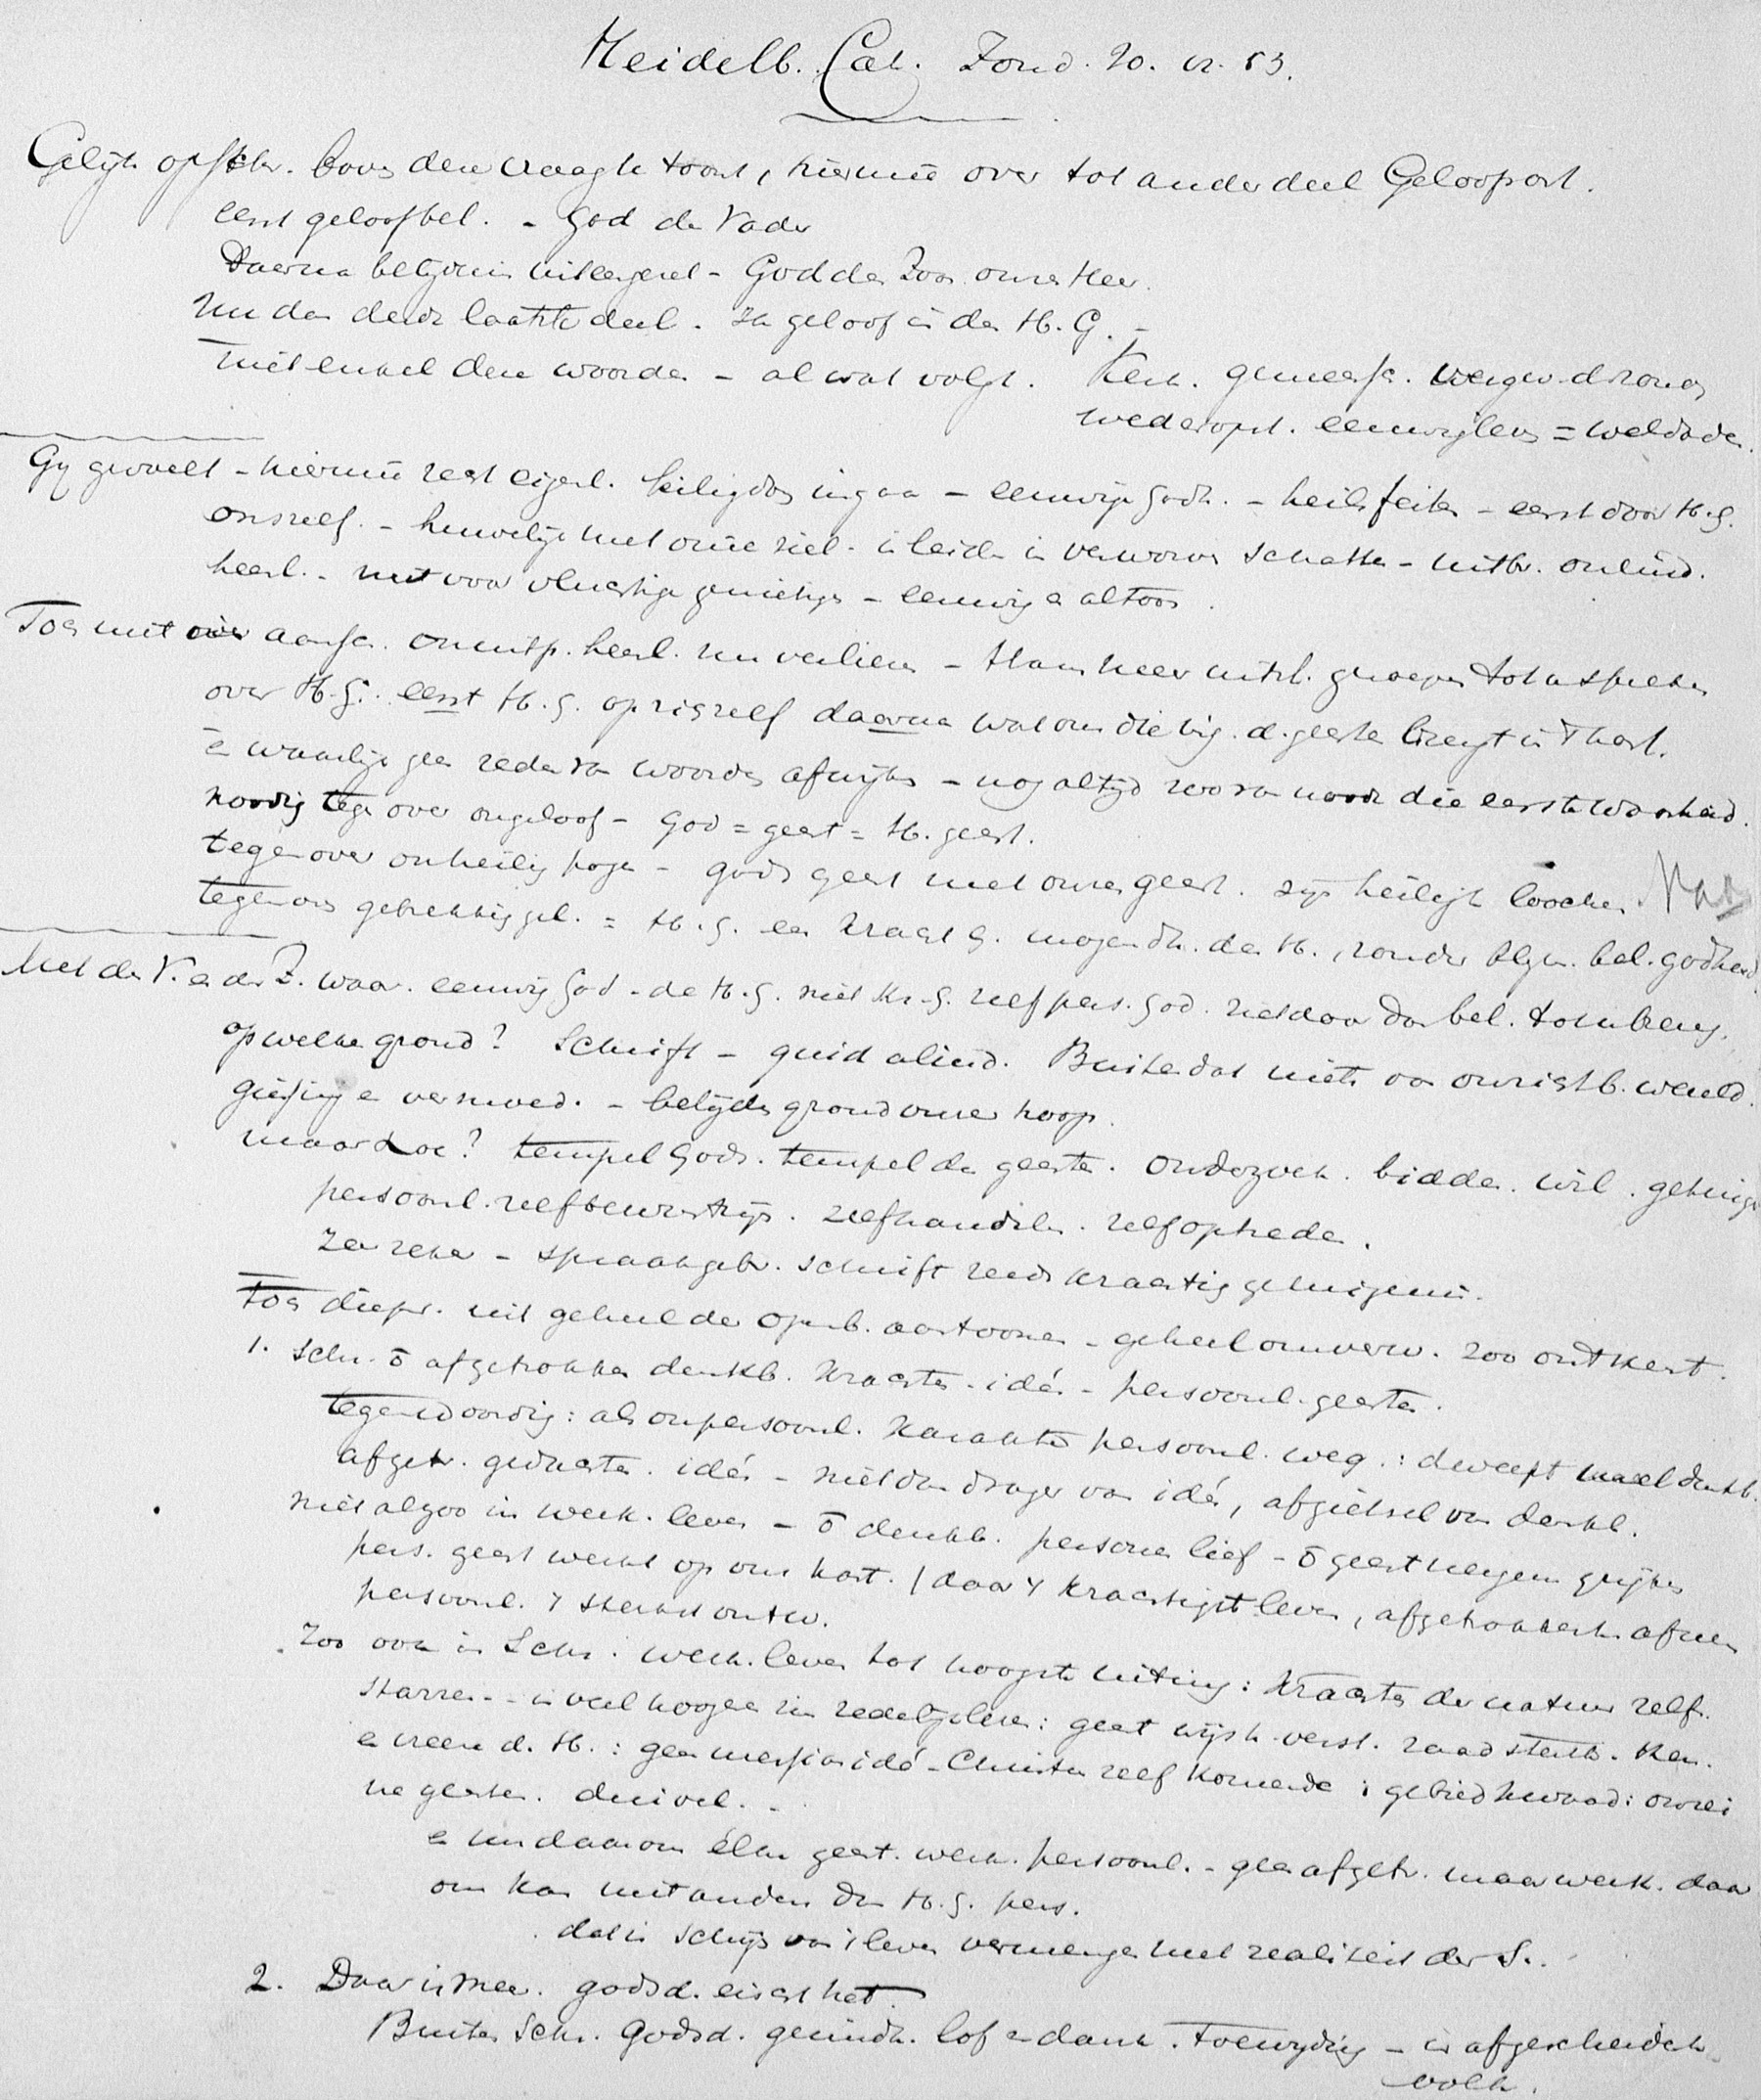 Heidelb. Cat. Zond. 20. vr. 53.
Gelijk opschr. boven deze vraag te toont, hiermeê over tot ander deel Geloofsart.
eerst geloofbel. - God de Vader
Daarna belijdenis uitlegged - God de Zoon onze Heer.
Nu dan derde laatste deel. Ik geloof in den H. G. -
niet enkel deze woorden - al wat volgt. Kerk. gemeensch. vergev. d zonden
wederopst. eeuwig leven = weldaden.
Gij gevoelt - hiermeê eerst eigenl. heiligdom ingaan - eeuwige Godh. - heilsfeiten - eerst door H. G.
onszelf. - huwelijk met onze ziel. inleiden in verworven schatten - uitbr. oneind.
heerl. - niet voor vluchtige genieting - eeuwig en altoos.
Toch niet aansch. onuitsp. heerl. nu verliezen - Ham neer uitsl. geroepen tot u te spreken
over H. G.: eerst H. G. op zigzelf daarna wat ons die big. d. geeste brengt in 't hart.
en waarlijk geen reden van woorden afwijken - nog altijd zoo van noode die eerste waarheid.
noodig tegenover ongeloof - God = geest = H. geest.
tegenover onheilig pogen - gods geest met onzen geest. zijn heiligh. loochen.
tegenover gebrekkig gel. = H. G. een kracht G. mogendh. des H., zonder blijm. bel. godheid.
Met den V. en den Z. waar. eeuwig God - de H. G. niet Kr. G. zelf pers. God. ziet daar den bel. tot u breng.
op welken grond? Schrift - quid aliud. Buiten dat niets van onzichtb. wereld.
gissing en vermoed. - belijden grond onzer hoop.
maar hoe? tempel Gods. tempel des geestes. onderzoek. bidden. wil. getuigt
persoonl. zelfbewustzijn. zelfhandelen. zelfoptreden.
Zeer zeker - spraakgebr. schrift reeds krachtig getuigenis.
Toch dieper. uit geheel der openb. aantoonen - geheel omverw. zoo ontkent.
1. Schr. ō afgetrokken denkb. krachten - idéen - persoonl. geesten.
tegenwoordig: als onpersoonl. karakter persoonl. weg.: dweept met denkb.
afgetr. gedachten. idéen - niet den drager van idée, afgietsel van denkb.
niet alzoo in werk. leven - ō denkb. personen lief - ō geest nergens grijpen
pers. geest werkt op ons hart. / daar 't krachtigst leven, afgetrokkenh. afnem
persoonl. 't sterkst ontw.
Zoo ook in Schr. werk. leven tot hoogste uiting: krachten der natuur zelf.
starren - - in veel hooger in redelijk leven: geest wijsh. verst. raad sterkte. ken.
en vreeze d. H.: geen messias idé - Christus zelf komende: gebied kwaad: onrei
ne geesten. duivel. -
en nu daarom elke geest. werk. persoonl. - geen afgetr. maar werk. daar
om kan niet anders den H. G. pers.
dat is schijn van 't leven vermengen met realiteit der S.
2. Daar is meer. godsd. eischt het.
Buiten Schr. Godsd. gezindh. lof en dank. toewijding - in afgescheidenh.
volk.